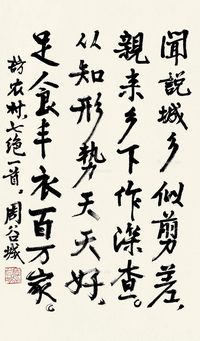 聞説城乡似剪差，
親来乡下作深查。
从知形勢天天好，
足食丰衣百万家。
訪农村，七绝一首。周谷城